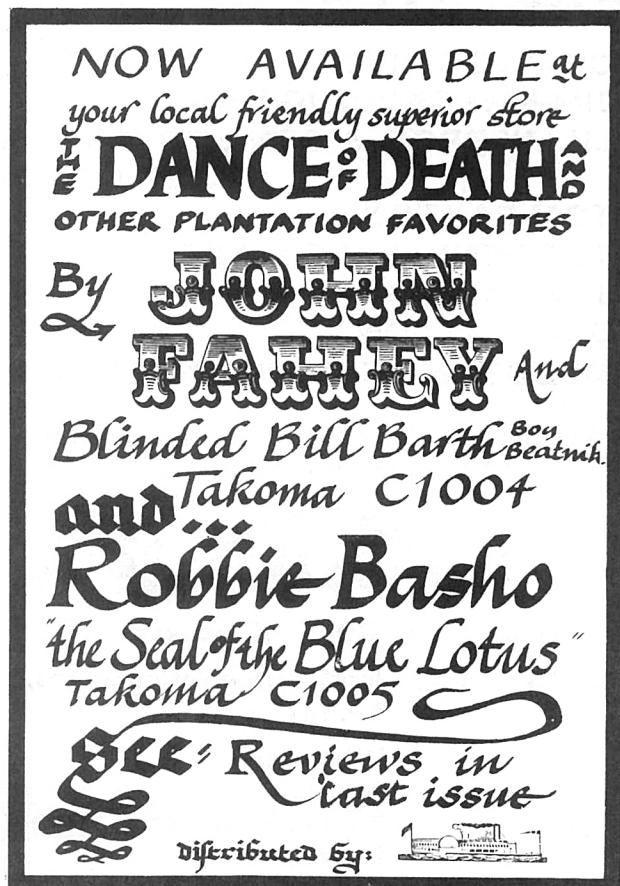 NOW AVAILABLE at
your local friendly superior store
THE DANCE OF DEATH AND
OTHER PLANTATION FAVORITES
By JOHN
FAHEY And
Blinded Bill Barth Boy Beatnik.
Takoma C1004
and...
Robbie Basho
"the Seal of the Blue Lotus"
Takoma C1005
See: Reviews in
last issue
distributed by: